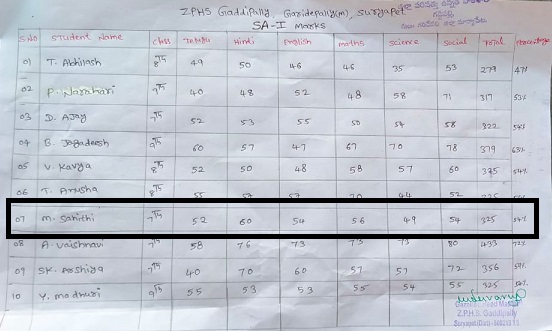 ZPHS Gaddipally, Garidepally(m), Suryapet
SA-I Marks
S.No Student Name Class Telugu Hindi English maths Science Social Total Percentage
01 T. Abhilash 8th 49 50 46 46 35 53 279 47%
02 P. Narahari 9th 40 48 52 48 58 71 317 53%
03 D. Ajay 9th 52 53 55 50 54 58 322 54%
04 B. Jagadeesh 9th 60 57 47 67 70 78 379 63%
05 V. Kavya 8th 52 50 48 58 57 60 325 54%
06 T. Anusha 8th 55 57 44 52
07 M. Sahithi 7th 52 60 54 56 49 54 325 54%
08 A. Vaishnavi 7th 58 76 73 73 73 80 433 72%
09 SK. Arshiya 7th 40 70 60 57 57 72 356 59%
10 Y. madhuri 9th 55 53 53 55 54 55 325
Gazetted Head Master
Z.P.H.S. Gaddipally